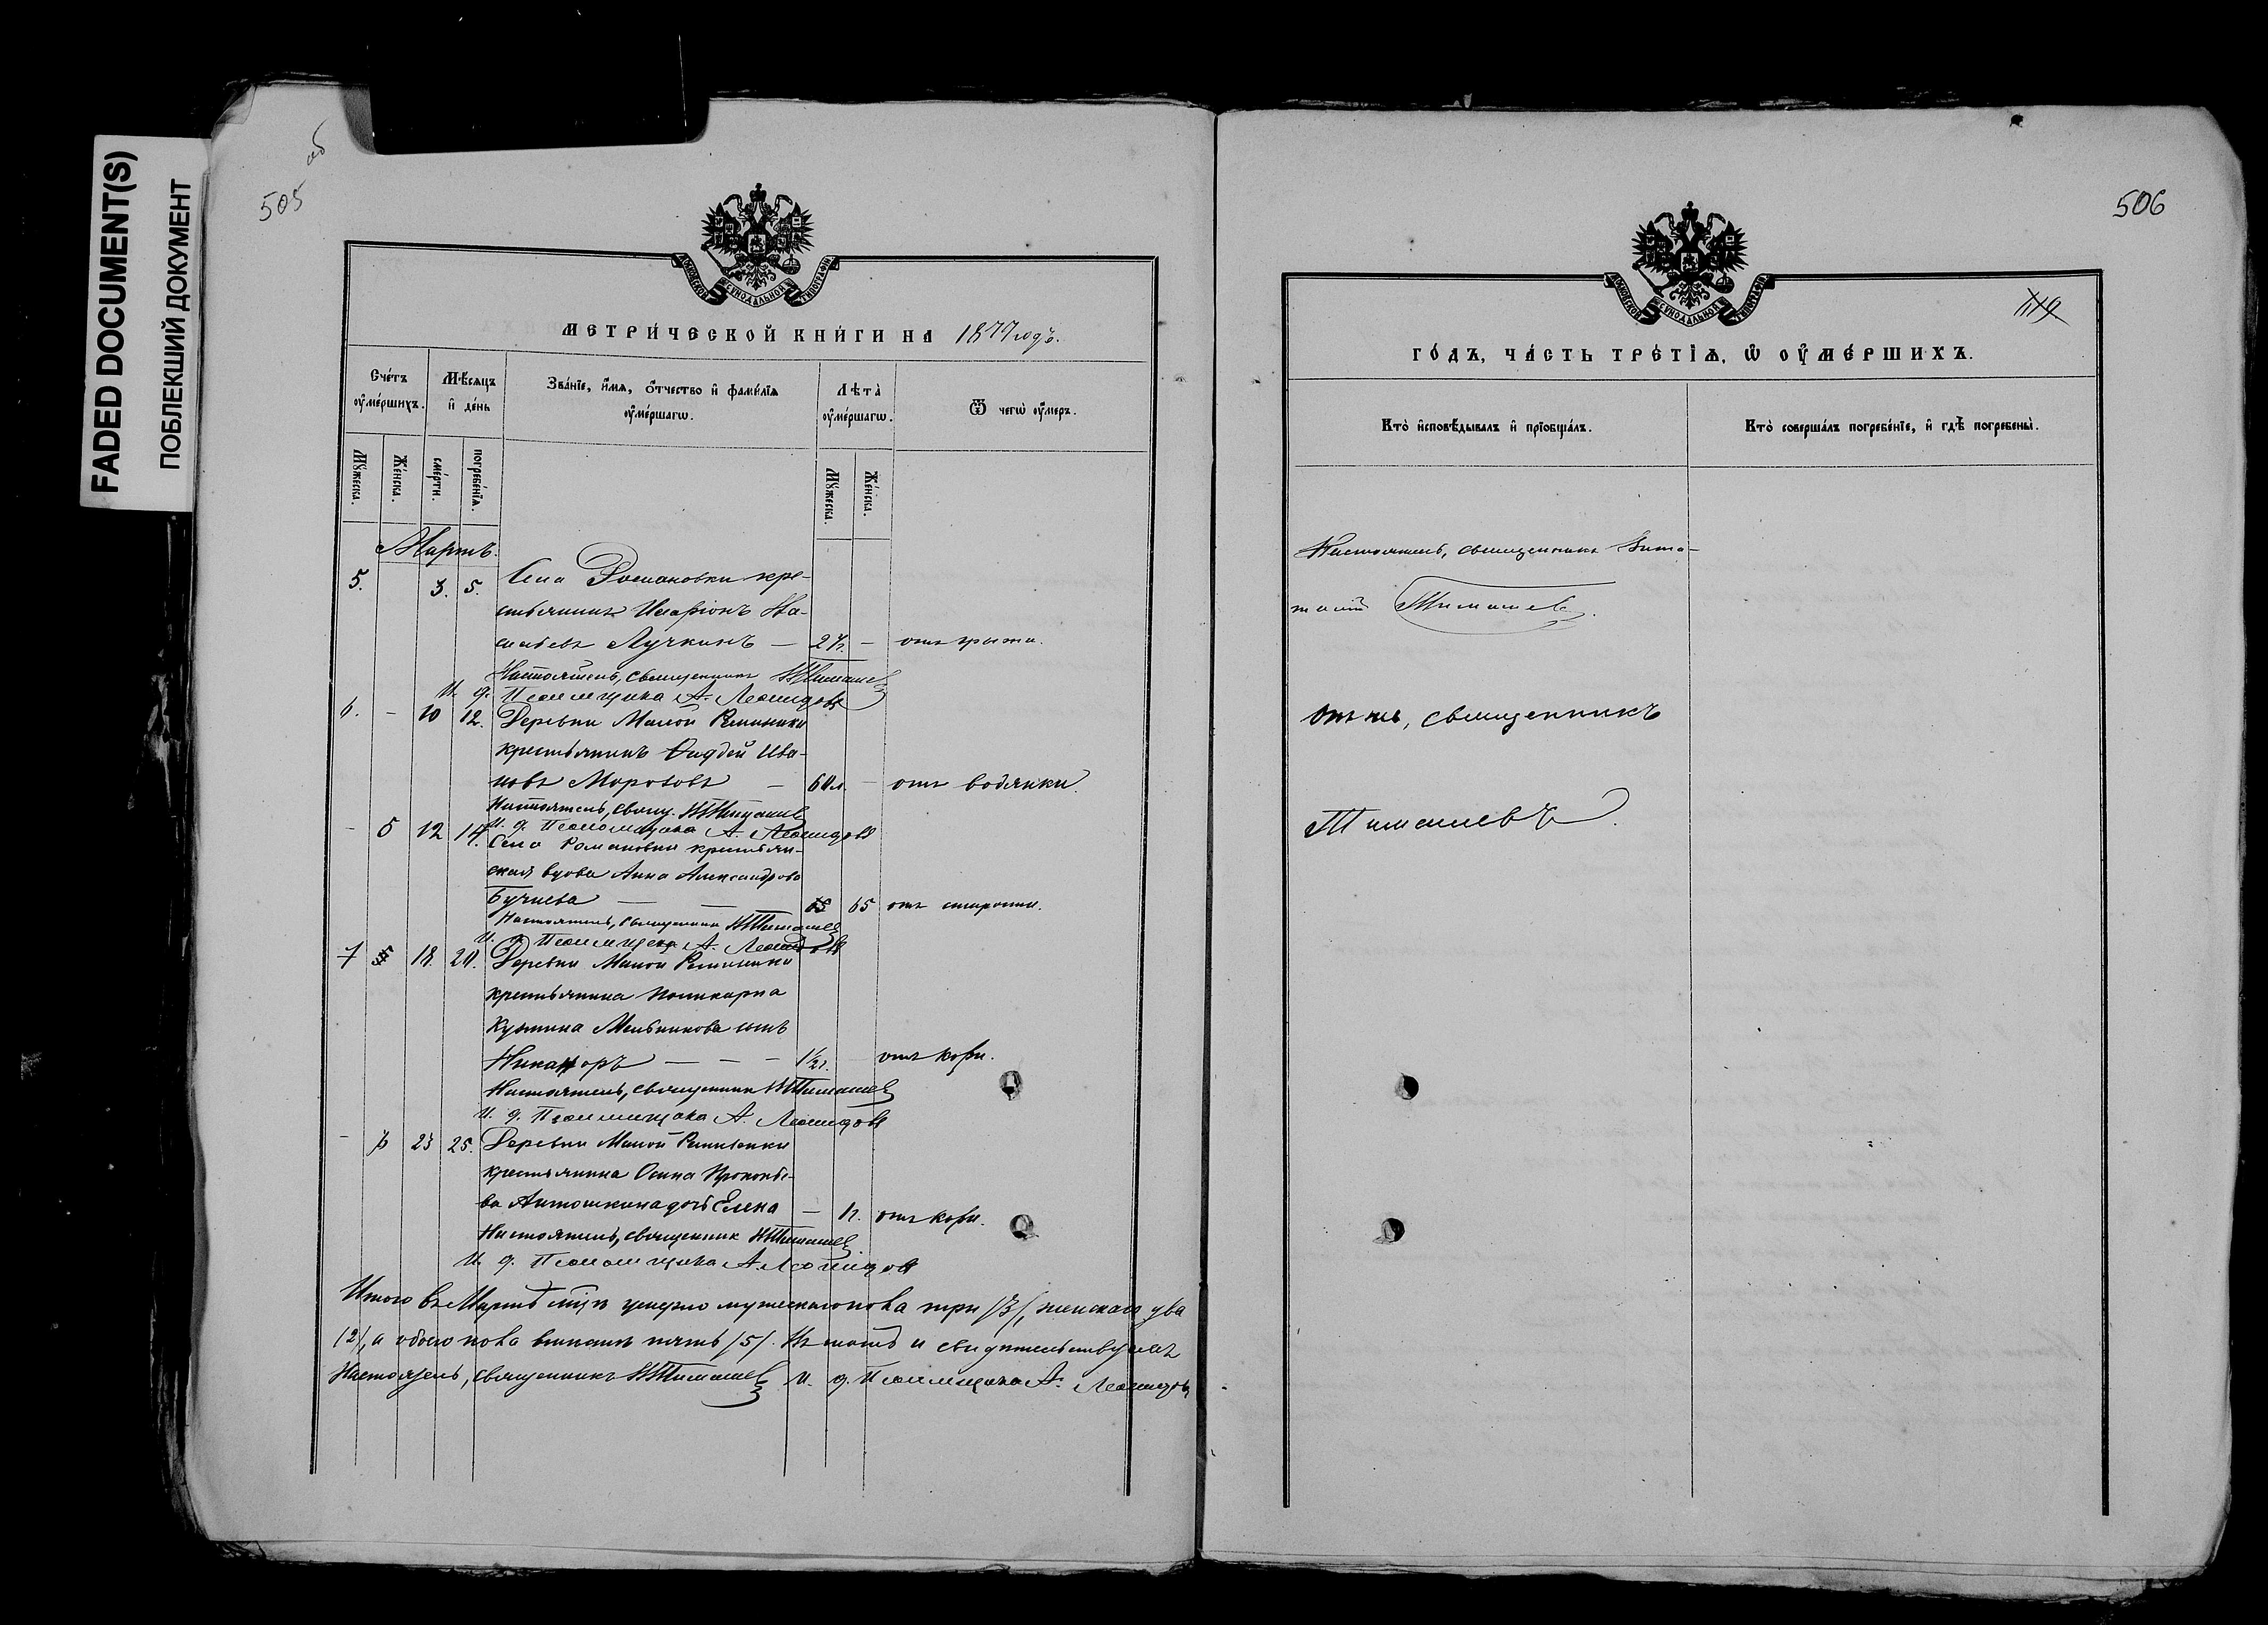 FADED DOCUMENT(S)
ПОБЛЕКШИЙ ДОКУМЕНТ
505
об
МОСКОВСКОЙ СѴНОДАЛЬНОЙ ТИПОГРАФІИ
МЕТРИ́ЧЕСКОЙ КНИ́ГИ НА 1877 годъ.
Сче́тъ ᲂу҆ме́ршихъ.
Мѣ́сяцъ и҆ де́нь
Зва́нїе, и҆́мѧ, ѻ҆́тчество и҆ фами́лїѧ ᲂу҆ме́ршагѡ.
Лѣта̀ ᲂу҆ме́ршагѡ.
Ѿ чегѡ̀ ᲂу҆́меръ.
Мꙋ́жеска.
Же́нска.
сме́рти.
погребе́нїѧ.
Мꙋ́жеска.
Же́нска.
Мартъ.
5. 3. 5. Села Романовки кре-
стьянинъ Иларіонъ
Лучкинъ — 27 г. — отъ грыжи.
Настоятель, священникъ В Тимашев
И. д. Псаломщика А. Леонидовъ
6. — 10 12. Деревни Малой Ремизенки
крестьянинъ Фаддей Ива-
новъ Морозовъ — 60 л. — отъ водянки.
Настоятель, свящ. В Тимашев
И. д. Псаломщика А. Леонидовъ
— 5 12 14. Села Романовки крестьян-
ская вдова Анна Александрова
— — 65 отъ старости.
Настоятель, священникъ В Тимашев
И. д. Псаломщика А. Леонидовъ
7 18. 20. Деревни Малой Ремизенки
крестьянина Поликарпа
Кузмина Мельникова сынъ
Никаноръ — — — 1½ г. отъ кори.
Настоятель, священникъ В Тимашев
И. д. Псаломщика А. Леонидовъ
— 6 23 25. Деревни Малой Ремизенки
крестьянина Осипа Прокопье-
ва Антошкина дочь Елена — 1 г. отъ кори.
Настоятель, священникъ В Тимашев
И. д. Псаломщика А. Леонидовъ
Итого въ Мартѣ м‑цѣ умерло мужескаго пола три /3/, женскаго два
/2/, а обоего пола вмѣстѣ пять /5/. Въ томъ и свидѣтельствуемъ
Настоятель, священникъ В Тимашев И. д. Псаломщика А. Леонидовъ
506
МОСКОВСКОЙ СѴНОДАЛЬНОЙ ТИПОГРАФІИ
ГО́ДЪ, ЧА́СТЬ ТРЕ́ТЇѦ, Ѡ҆ ОУ҆МЕ́РШИХЪ.
Кто̀ и҆сповѣ́дывалъ и҆ прїѡбща́лъ.
Кто̀ соверша́лъ погребе́нїе, и҆ гдѣ̀ погребены̀.
Настоятель, священникъ Вита-
лій Тимашев.
Онъ же, священникъ
Тимашевъ.